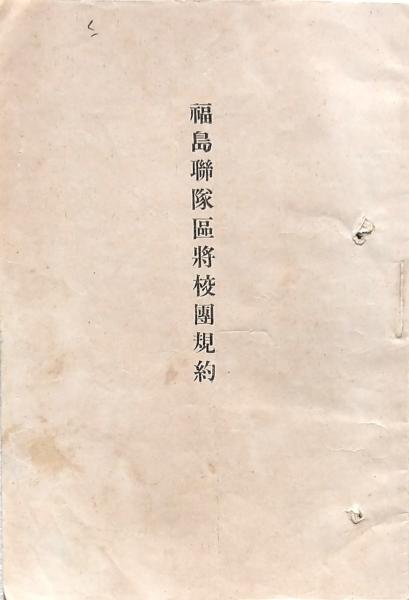 福島聯隊區將校團規約